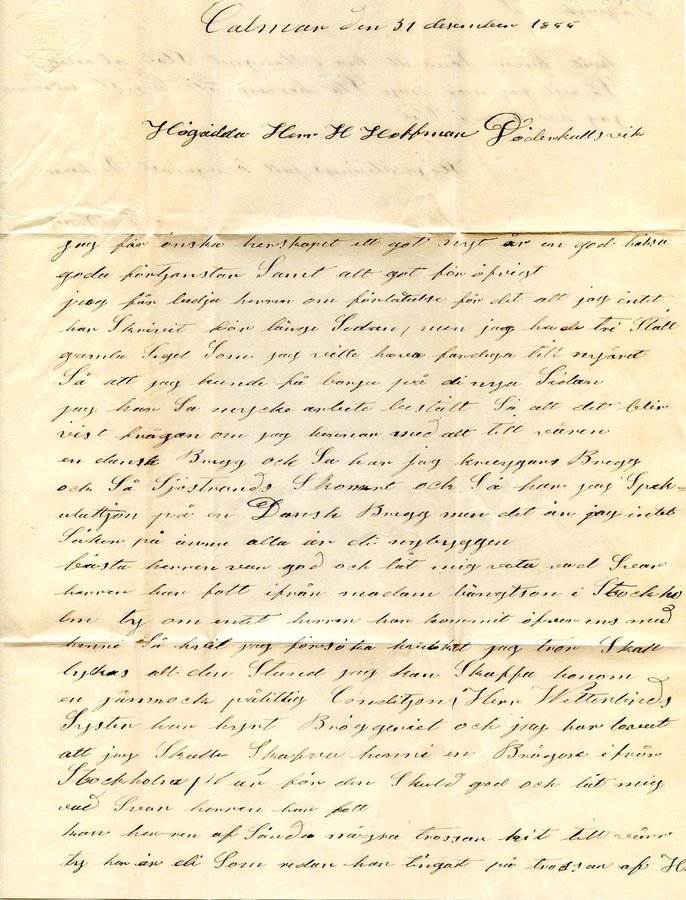 Calmar den 31 desember 1844
Högädda Herr H Hoffman Döderhultsvik
jag får önska herskapet ett got nyt år en god hälsa
goda förtjanstar Samt alt got för öfrigt
jag får bedja herren om förlåtelse för det att jag intet
har Skrivit för länge Sedan, men jag hade tri Stält
gamla Segel Som jag ville hava fardiga till nyåret
Så att jag kunde få borja på di nya Sidan
jag har Sa mycke arbete bestält Så att det blir
vist frågan om jag hennar med alt till våren
en dansk Brigg och Sa har jag Brigg
och Så Sjöstrands Skonert och Så har jag Spek-
ulattjon på en Dansk Brigg men det än jag intet
Säker på ännu alla är di nybyggen
bästa herren var god och låt mig veta vad Svar
herren har fott ifrån madam bängtson i Stockho
lm ty om entet herren har kommit öfver ens med
henni Så kvil jag försöka jag tror Skall
lyckas att den Stund jag kan Skaffa honom
en jämnock pålitlig Conditjon, Herr Wetterlinds
Syster har hyrt Bröggeriet och jag har lovat
att jag Skulle Skafva henni en Brögare ifrån
Stockholm, var för den Skuld god och låt mig
vad Svar herren har fott
kan herren af Sända några trossar hit till
ty här är di Som redan har tingat på trossar af H